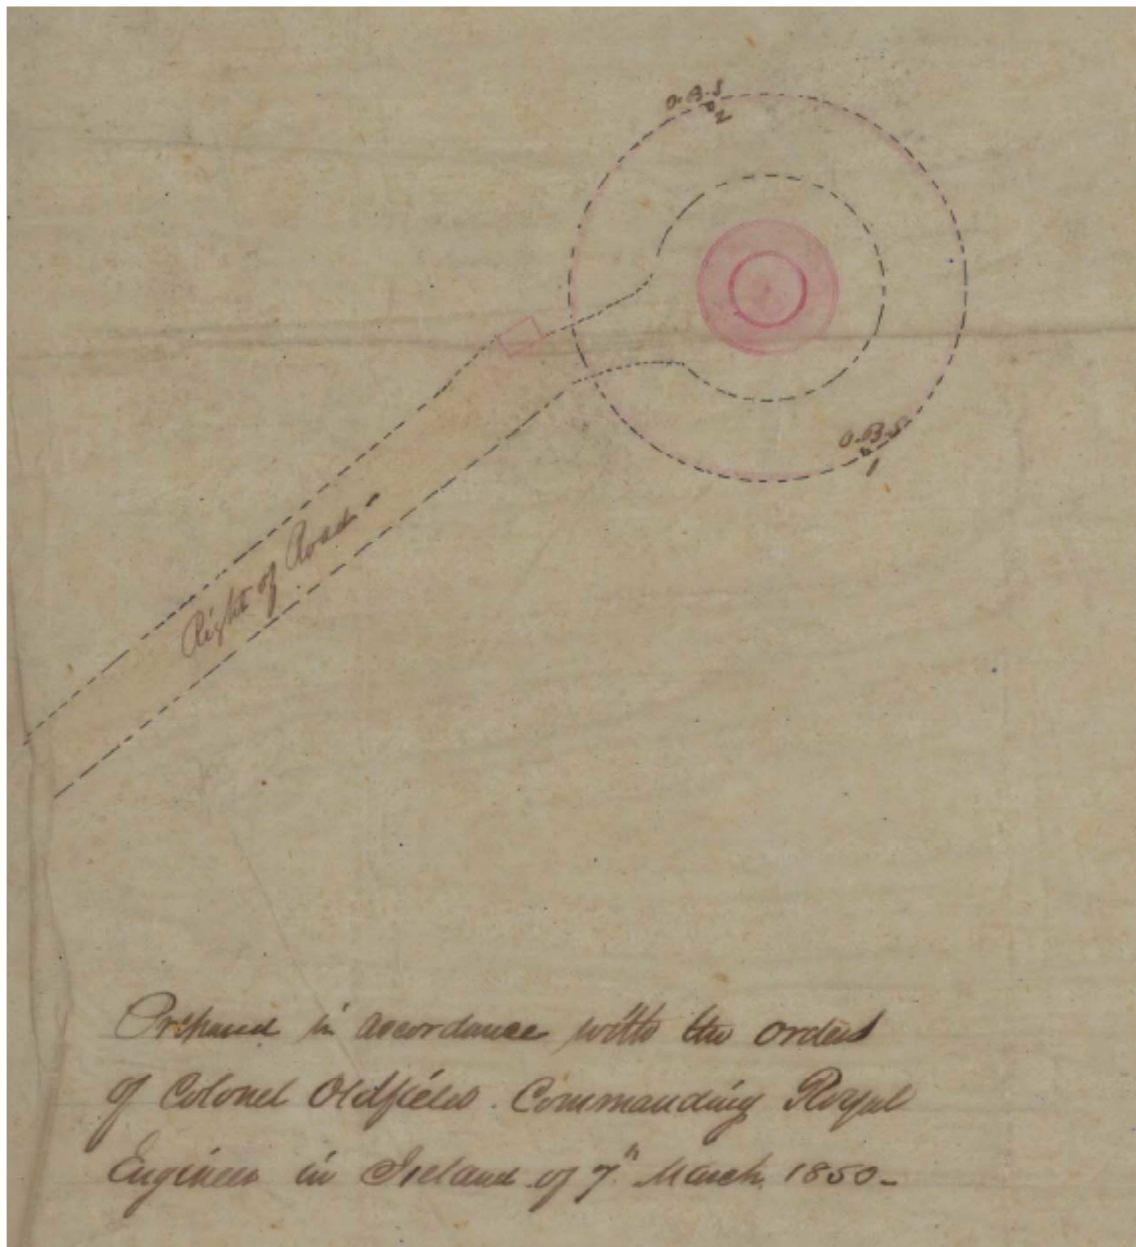 O.B.S
2
O.B.S
1
Right of Road
Prepared in accordance with the orders
of Colonel Oldfield Commanding Royal
Engineer in Ireland of 7th March 1850-